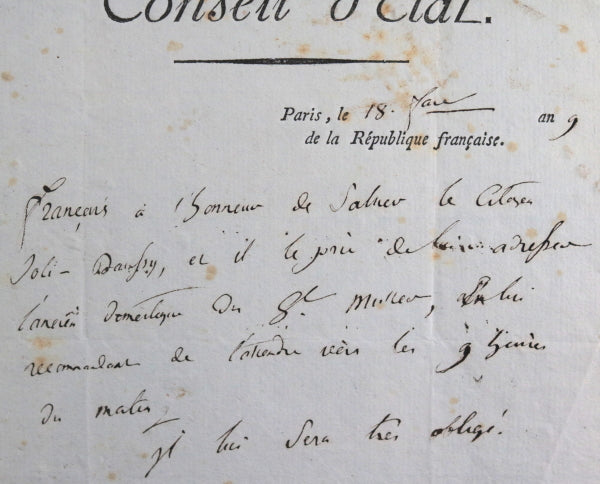 Conseil d'Etat.
Paris, le 18. an 9
de la République française.
français à l'honneur de Saluer le Citoyen
Joli-, et il le prie de lui adresser
l'ancien Domestique du Gl. , en lui
recommandant de l'attendre vers les 9 heures
du matin
il lui Sera très obligé.